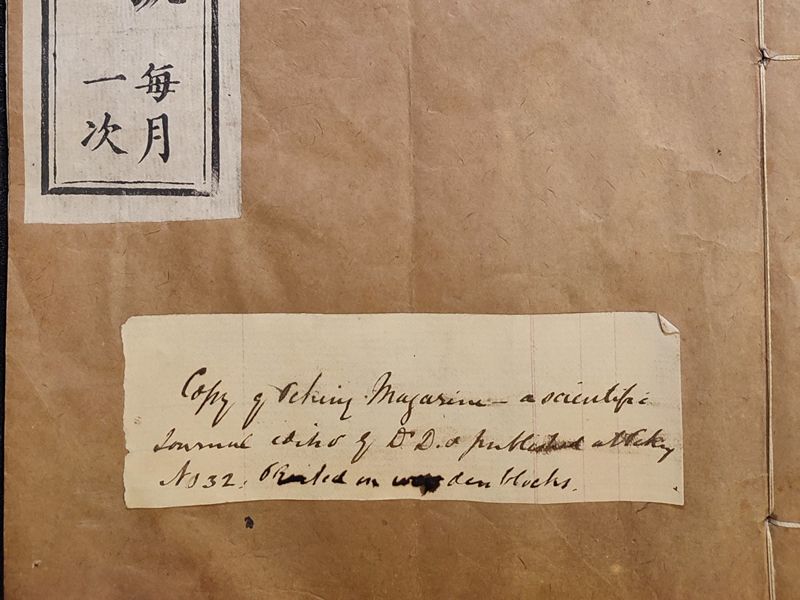 每月
一次
Copy of Peking Magazine – a scientific
Journal edited by Dr D. & published at Peking
No 32. Printed on wooden blocks.